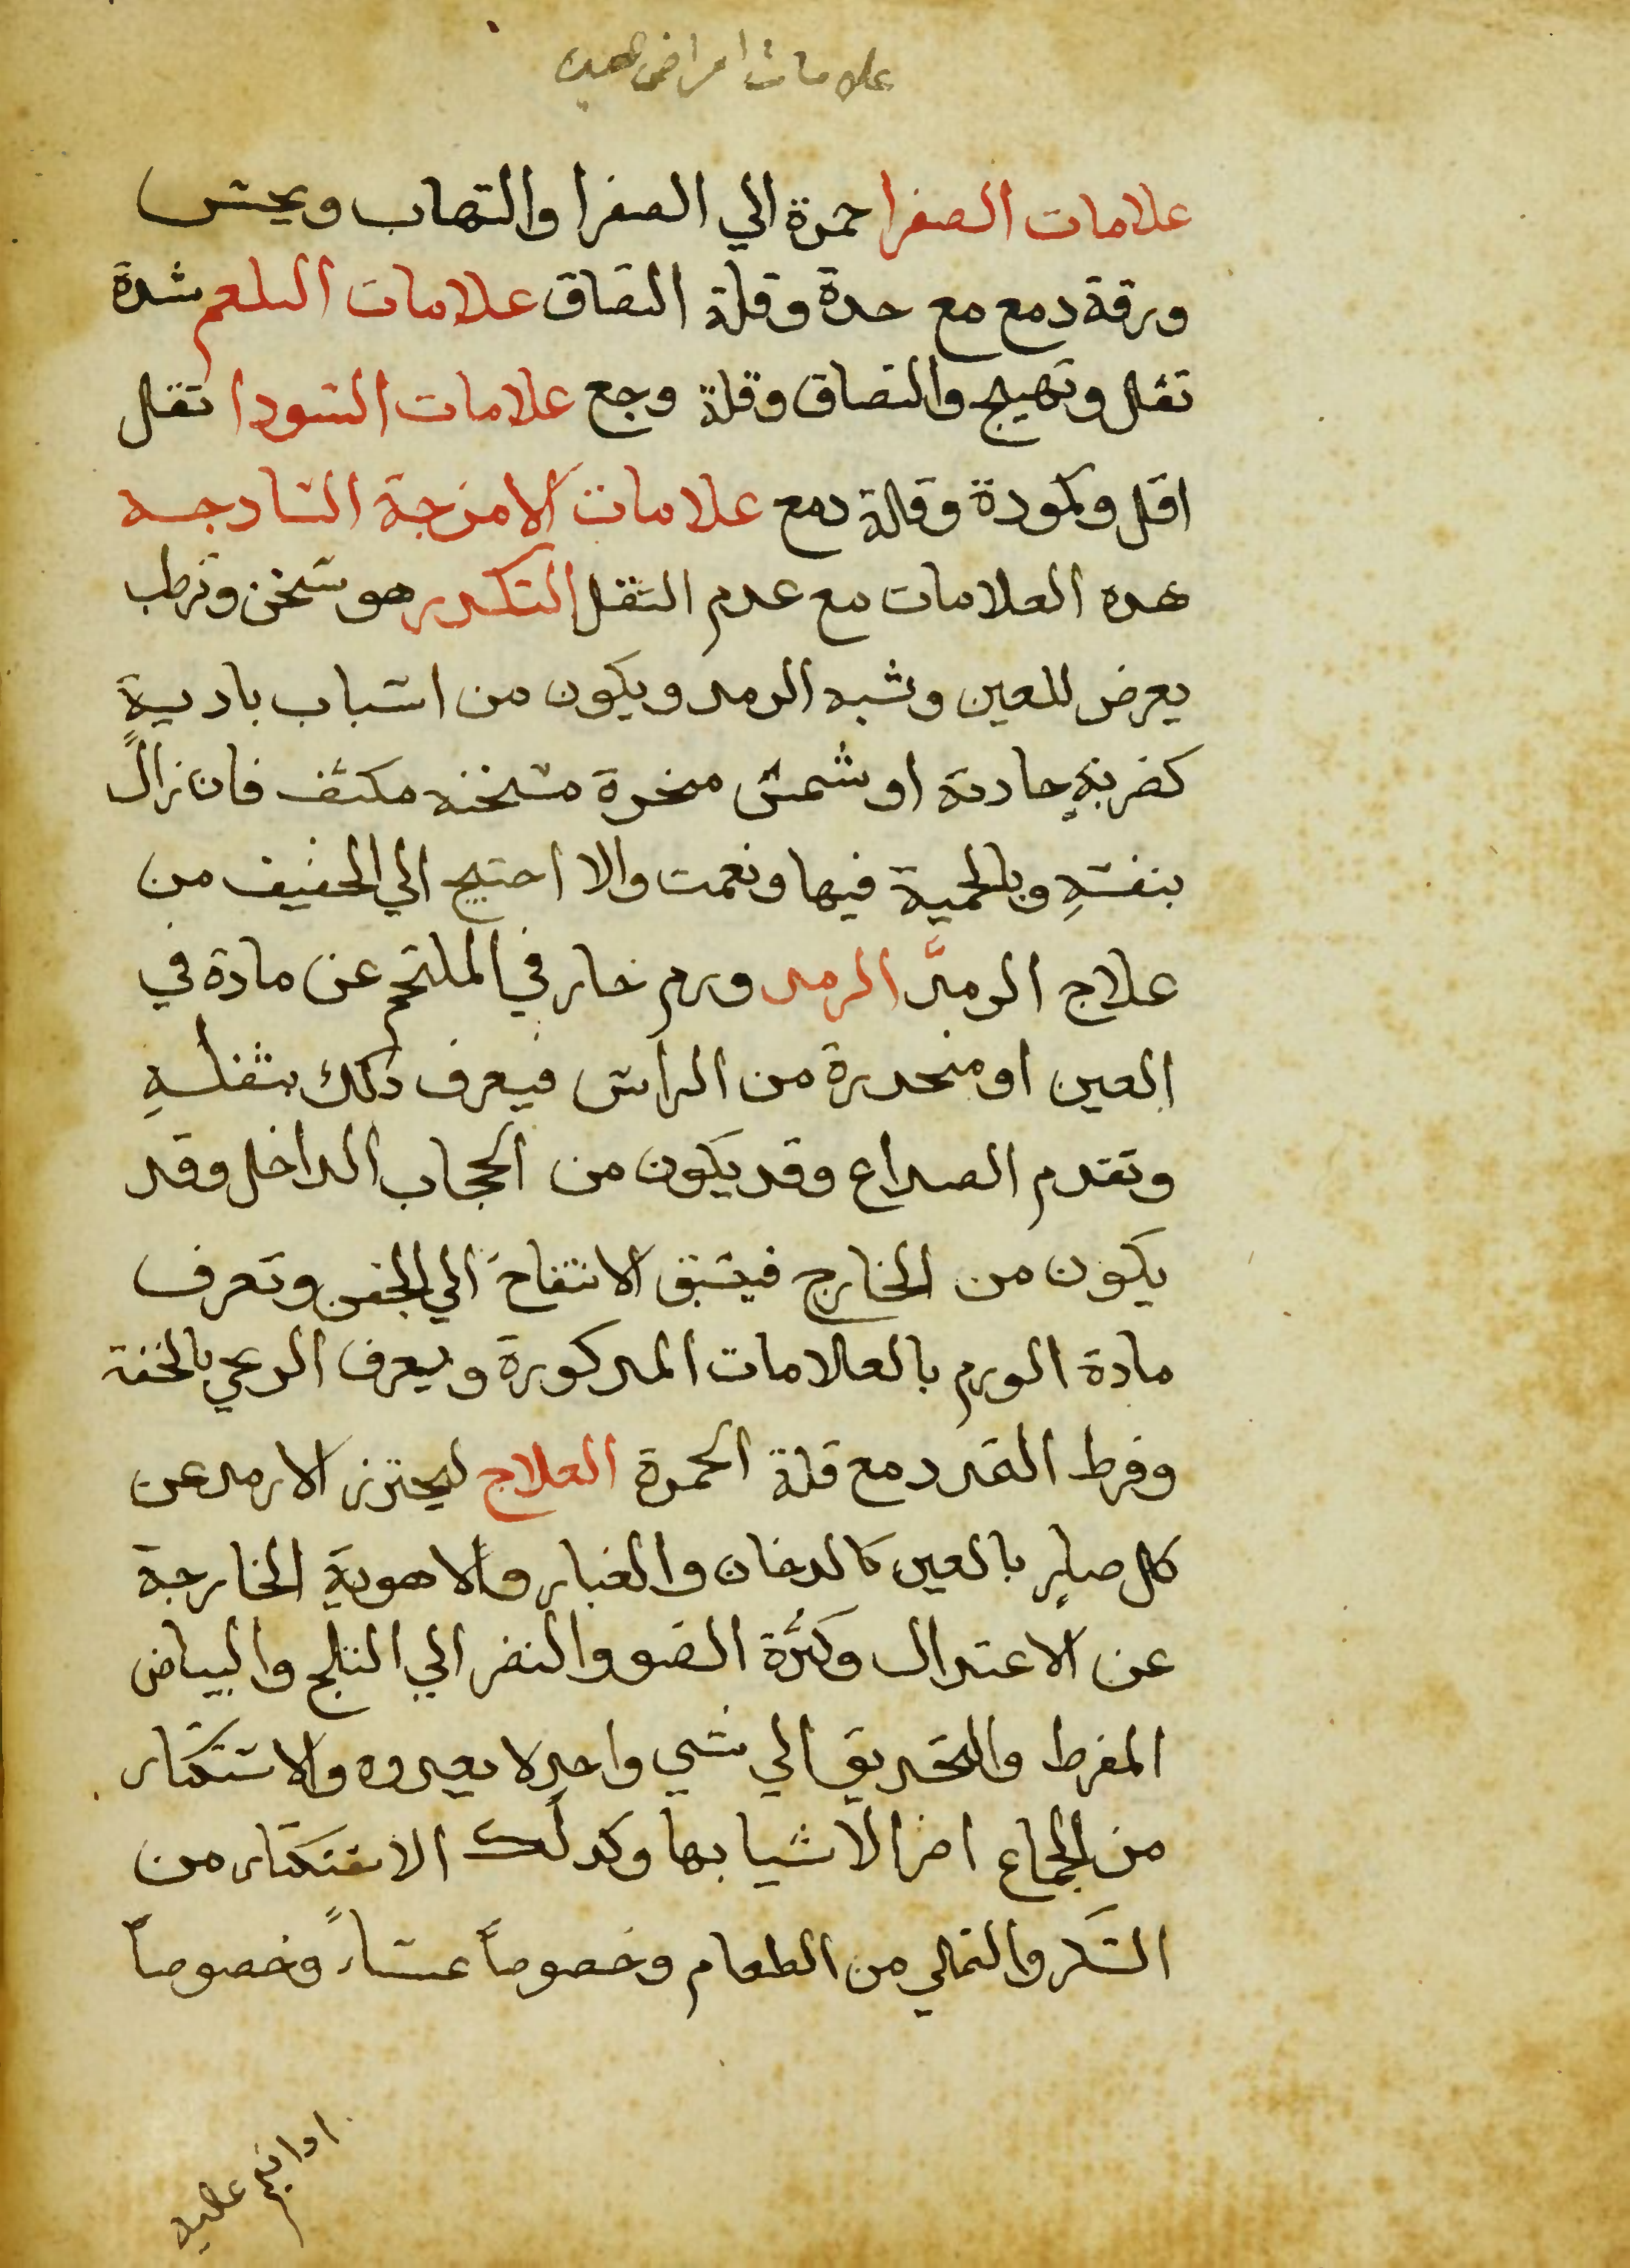 علامات امراض العين
علامات الصفرا حمرة الي الصفرا والتهاب ويحس
ورقة دمع مع حدة وقلة التصاق علامات البلغم شدة
ثقل وتهيج والتصاق وقلة وجع علامات السودا ثقل
اقل وكمودة وقلة دمع علامات الامزجة السادجه
هده العلامات مع عدم الثقل التكدر هو سخن وترطب
يعرض للعين وشبه الرمد ويكون من اسباب باديية
كضربةٍ حادثة او شمس مبخرة مسخنه مكثف فان زالً
بنفسهِ وبالحمية فيها ونعمت والا احتيج الي الخفيف من
علاج الرمد الرمد ورم حار في الملتحم عن مادة في
العين او منحدرة من الراس فيعرف ذلك بثقلهِ
وتقدم الصداع وقد يكون من الحجاب الداخل وقد
يكون من الخارج فيسبق الانتفاخ الي الجفن وتعرف
مادة الورم بالعلامات المدكورة ويعرف الريحي بالخفة
وفرط التمدد مع قلة الحمرة العلاج ليحترز الارمد عن
كل ضارٍ بالعين كالدخان والغبار والاهوية الخارجة
عن الاعتدال وكثرة الضو والنضر الي الثلج والبياض
المفرط والتحديق الي شي واحد لا يعدوه والاستكثار
من الجماع اضر الاشيا بها وكدلك الاستكثار من
السكر والتملي من الطعام وخصوصاً عشاءً وخصوصاً
ادا نيم عليه